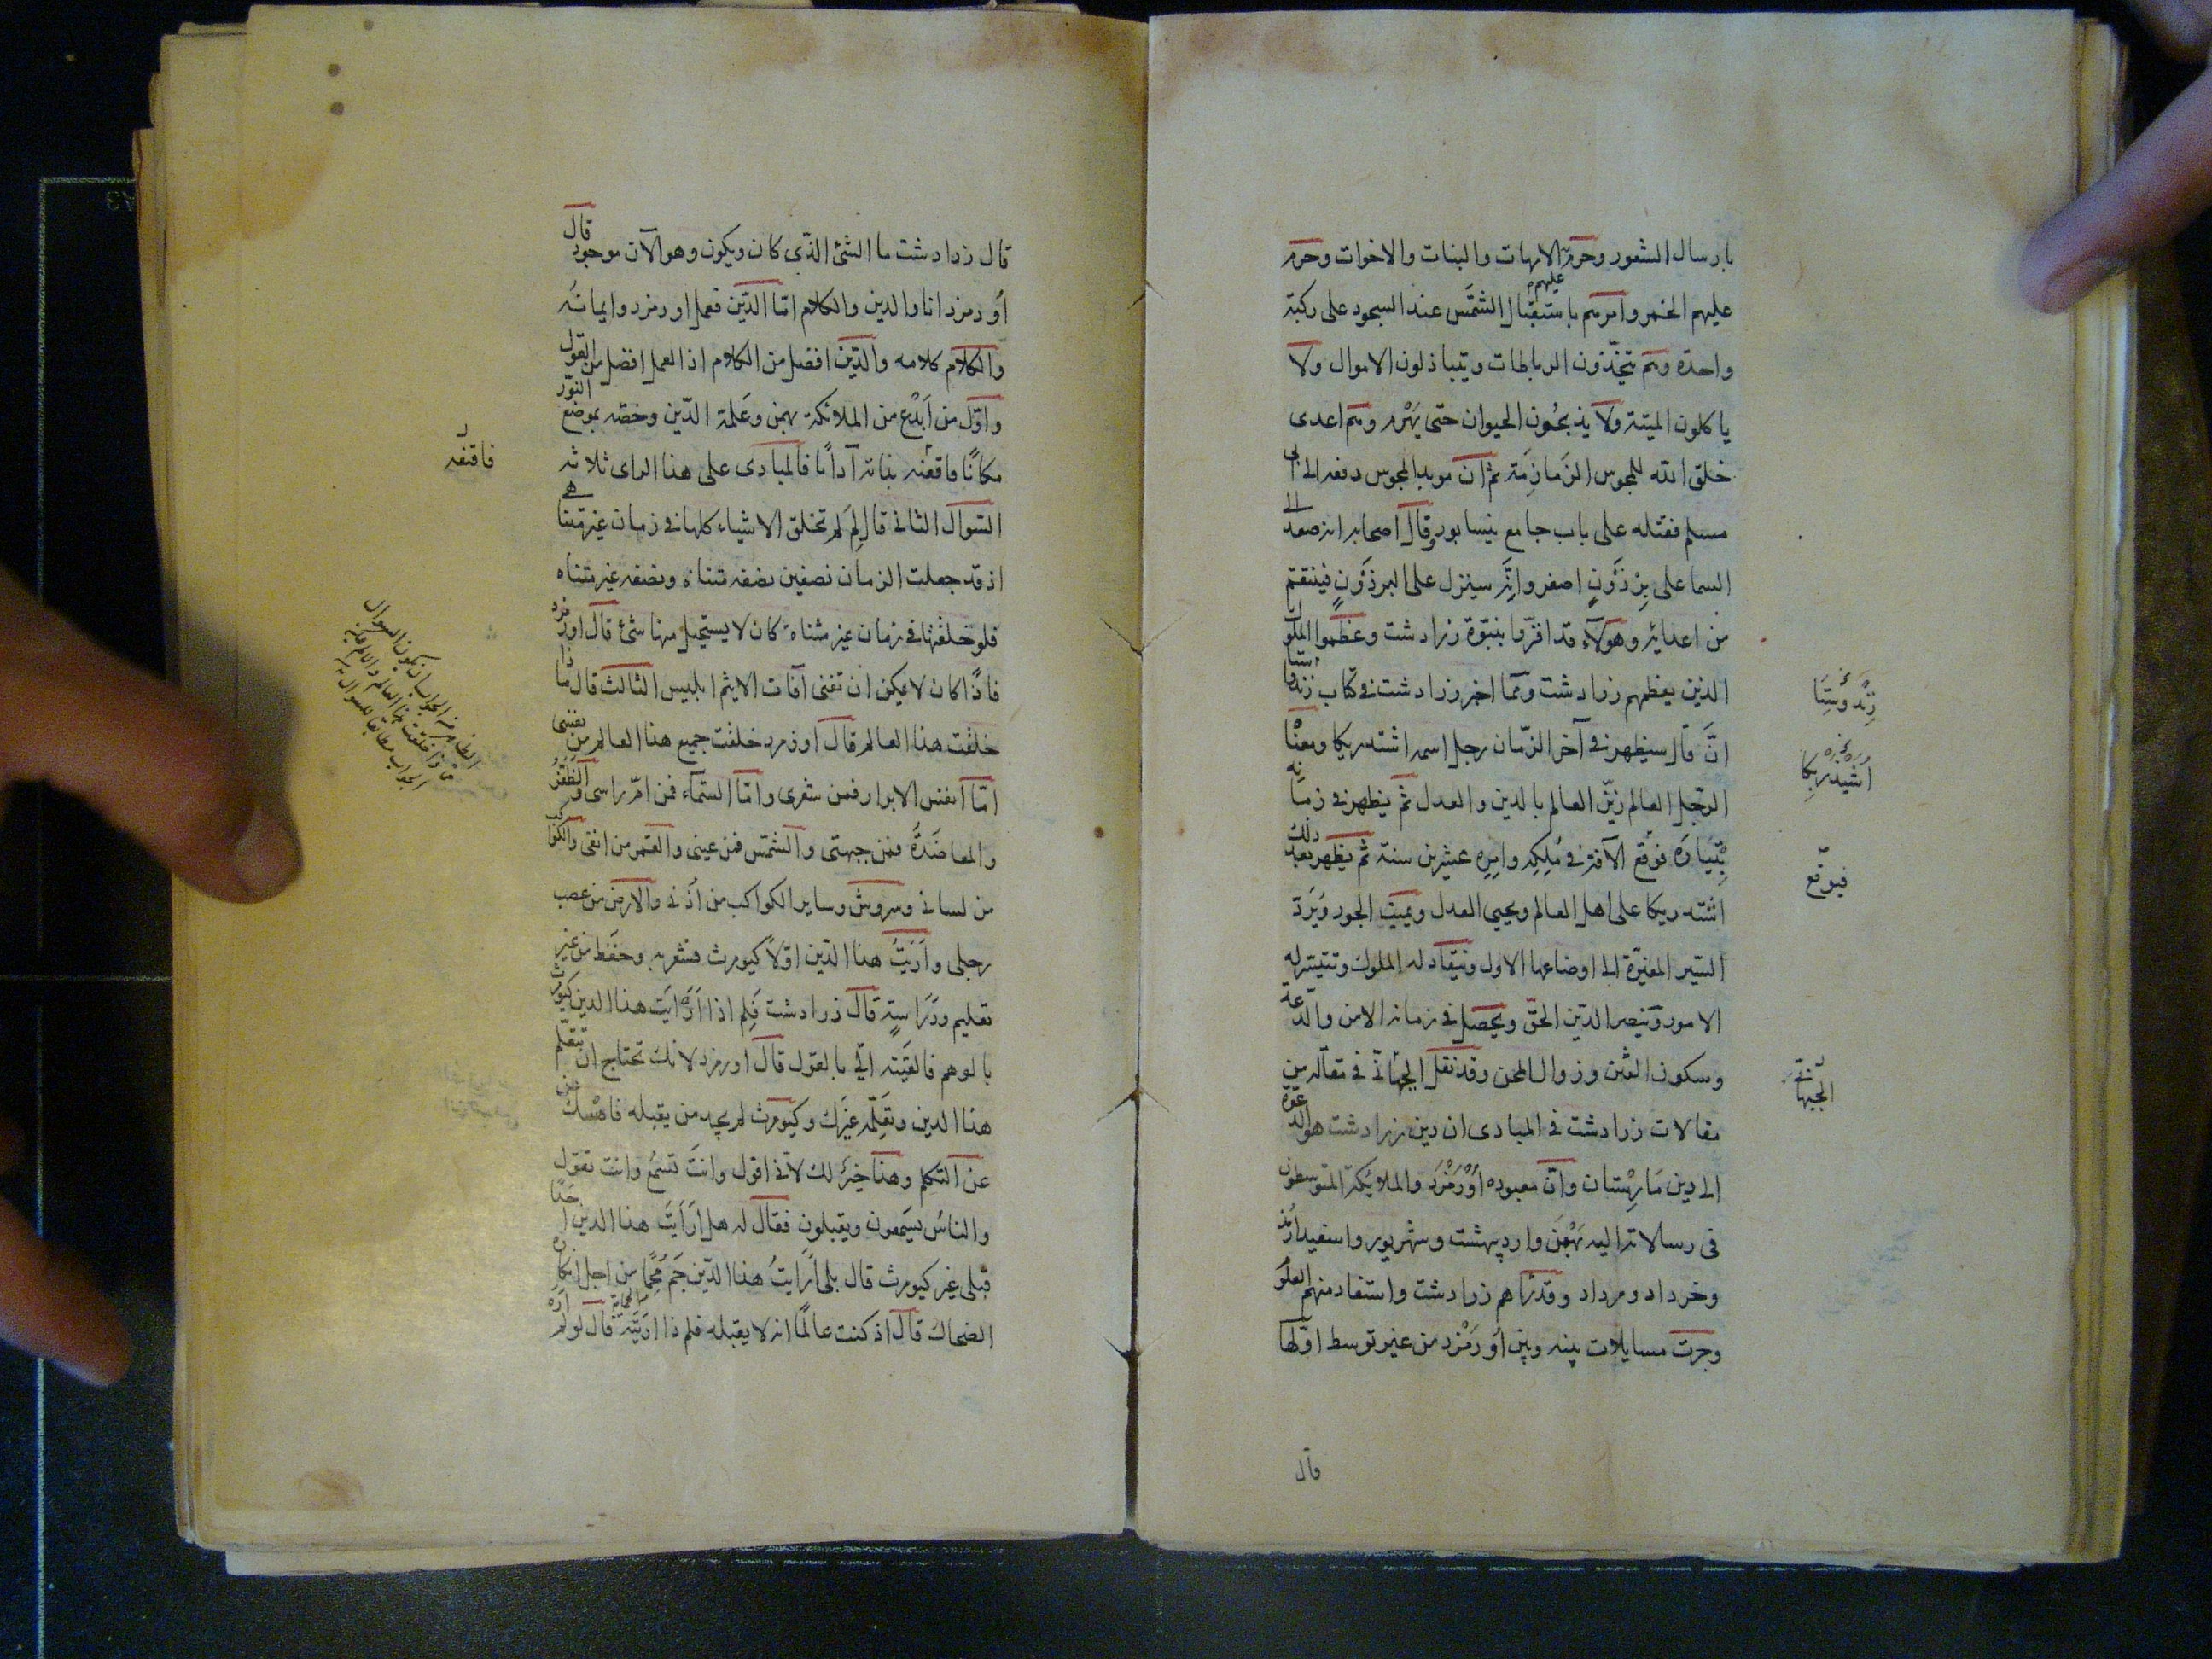 بارسال الشعور وحرم الامهات والبنات والاخوات وحرم
عليهم الخمر وامرهم باستقبال الشمس عند السجود على ركبة
عليهم
واحدة وهم يتخذون الرباطات ويتباذلون الاموال ولا
ياكلون الميتة ولا يذبحون الحيوان حتى يهرم وهم اعدى
خلق الله للمجوس الزمازمة ثم ان موبد المجوس دفعه الى ابى
مسلم فقتله على باب جامع نيسابور وقال اصحابه انه صعد الى
السما على برذون اصفر وانه سينزل على البرذون فينتقم
من اعدائه وهولاء قد اقروا بنبوة زرادشت وعظموا الملوك
الذين يعظمهم زرادشت ومما اخبر زرادشت فى كتاب زندوستا
زندوستا
ان قال سيظهر فى آخر الزمان رجل اسمه اشتدريكا ومعناه
أشيدريكا
الرجل العالم زين العالم بالدين والعدل ثم يظهر فى زمانه
بتياره فوقع الآفة فى ملكه وامره عشرين سنة ثم يظهر بعد ذلك
فيوقع
اشتدريكا على اهل العالم ويحيى العدل ويميت الجور ويرد
السير المغيرة الى اوضاعها الاول وينقاد له الملوك وتتيسر له
الامور وينصر الدين الحق ويحصل فى زمانه الامن والدعة
وسكون الفتن وزوال المحن وقد نقل الجهانى فى مقاله من
الجيهانى
مقالات زرادشت فى المبادى ان دين زرادشت هو الدعوة
الى دين مارستان وان معبوده اورمزد والملائكة المتوسطون
فى رسالاته اليه بهمن واردبهشت وشهريور واسفيدارمذ
وخرداد ومرداد وقد رآهم زرادشت واستفاد منهم العلوم
وجرت مسايلات بينه وبين أورمزد من غير توسط اولها
قال
قال زرادشت ما الشئ الذى كان ويكون وهو الآن موجود قال
أورمزد انا والدين والكلام اما الدين فعمل اورمزد وايمانه
والكلام كلامه والدين افضل من الكلام اذ العمل افضل من القول
واول من أبدع من الملائكة بهمن وعلمه الدين وخصه بموضع النور
مكانا فاقعنه بذاته آداما فالمبادى على هذا الراى ثلاثه
فاقنعه
السوال الثانى قال لم لم تخلق الاشياء كلها فى زمان غير متناهى
اذ قد جعلت الزمان نصفين نصفه متناه ونصفه غير متناه
فلو خلقتها فى زمان غير متناه كان لا يستحيل منها شئ قال اورمزد
فاذا كان لا يمكن ان تفنى آفات الاثيم ابليس الثالث قال ماذا
خلقت هذا العالم قال اورمزد خلقت جميع هذا العالم من نفسى
اما انفس الابرار فمن شعرى واما السماء فمن ام راسى والظفر
والمعاضدة فمن جبهتى والشمس فمن عينى والقمر من انفى والكواكب
من لسانى وسروش وساير الكواكب من أذنى والارض من عصب
رجلى وأريت هذا الدين اولا كيومرث فشعر به وحفظ من غير
تعليم ودراسة قال زرادشت فلم اذا أرايت هذا الدين كيومرث
بالوهم فالقيته الى بالقول قال اورمزد لانك تحتاج ان تتعلم
هذا الدين وتعلمه غيرك وكيومرث لم يجد من يقبله فامسك
عن التكلم وهذا خير لك لانى اقول وانت تسمع وانت تقول
والناس يسمعون ويقبلون فقال له هل أرأيت هذا الدين احدا
قبلى غير كيومرث قال بلى أرايت هذا الدين جم من اجل انكاره
الضحاك قال اذ كنت عالما انه لا يقبله فلم ذا اريته قال لو لم اره